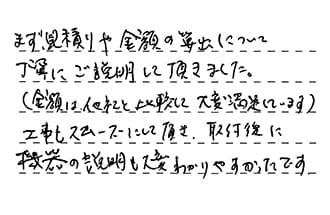 まず見積りや金額の算出について
丁寧にご説明して頂きました。
(金額は他社と比較して大変満足しています)
工事もスムーズにして頂き、取付後に
機器の説明も大変わかりやすかったです